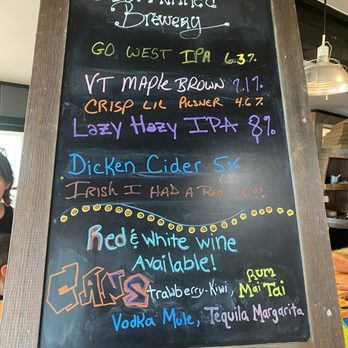 Brewery
GO WEST IPA 6.3%
VT MAPLE BROWN 7.1%
CRISP LIL PILSNER 4.6%
Lazy Hazy IPA 8%
Dicken Cider 5%
IRISH I HAD A Red
Red & white wine
Available!
CANS Strawberry-Kiwi, Rum
Mai Tai
Vodka Mule, Tequila Margarita